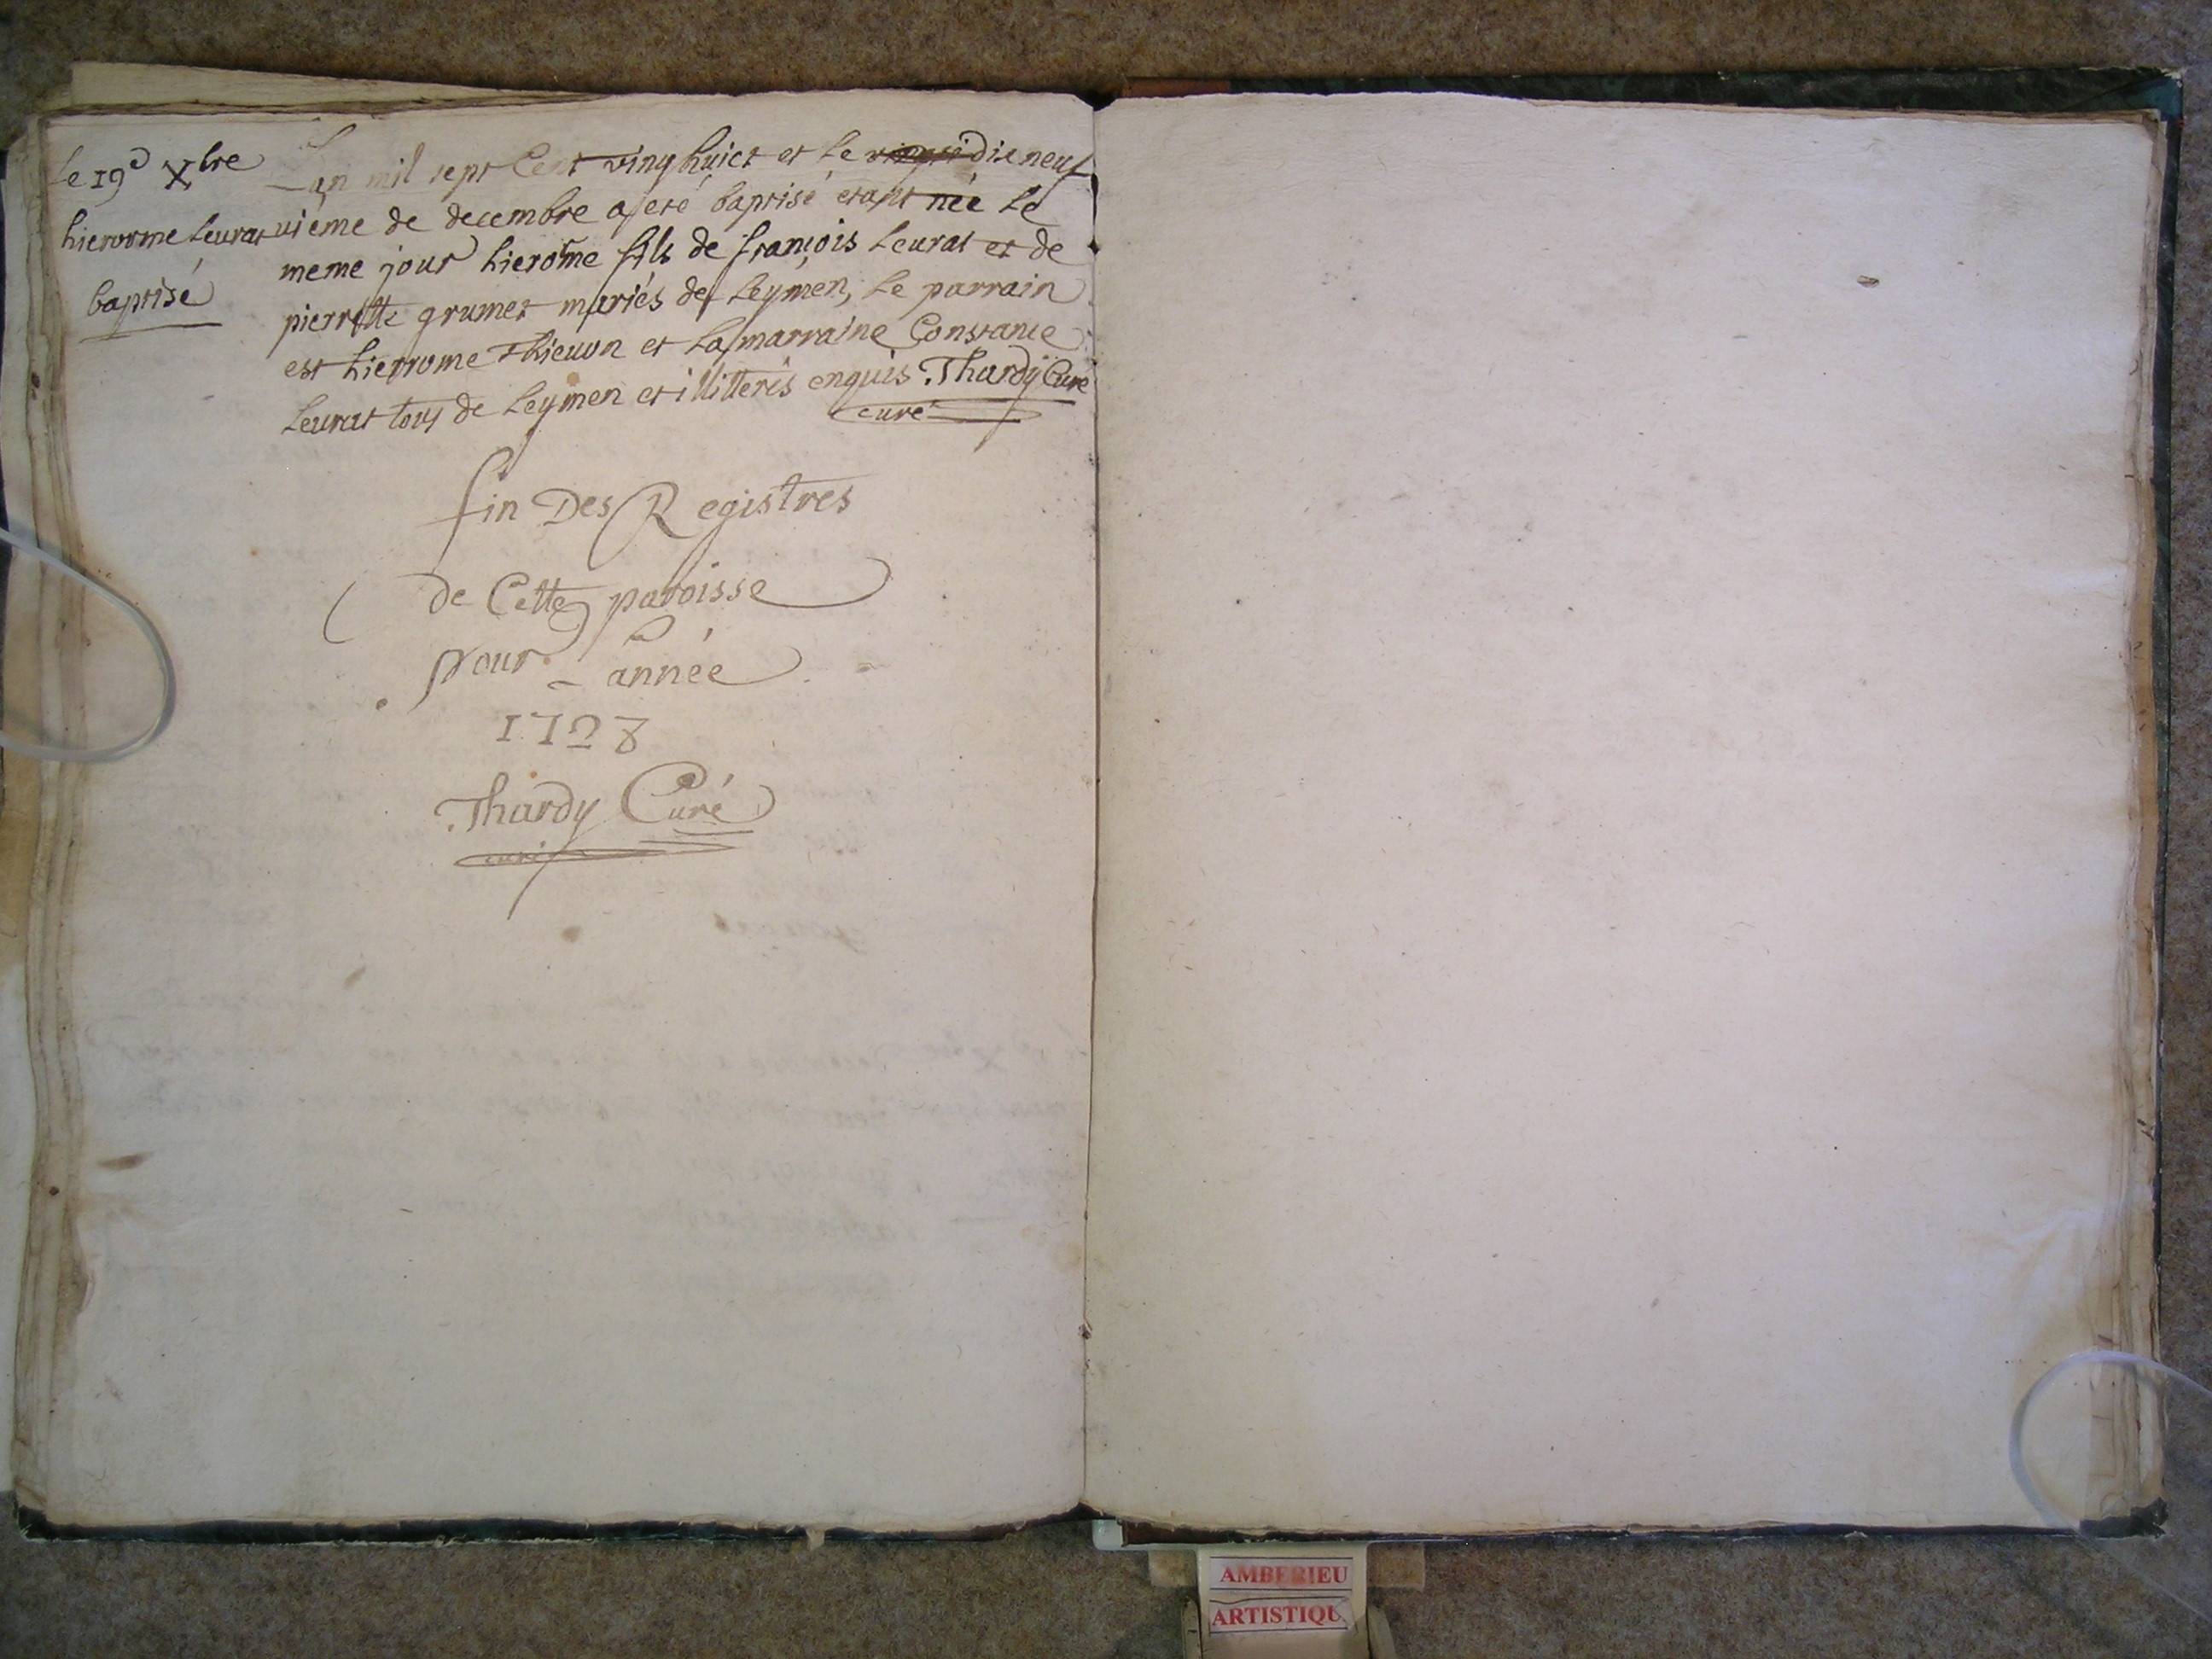 Le 19e Xbre
hierorme Leurat
baptisé
L'an mil sept Cent vinghuict et le dixneuf
uiéme de decembre a eté baptisé etant née le
meme jour hierome fils de françois Leurat et de
pierrette grumet mariés de Leymen, le parrain
est hierrome Thieuon et la marraine Constance
Leurat tous de Leymen et illitterés enquis. Thardy Curé
curé
fin Des Registres
de Cette paroisse
pour L'année
1728
Thardy Curé
curé
AMBERIEU
ARTISTIQU